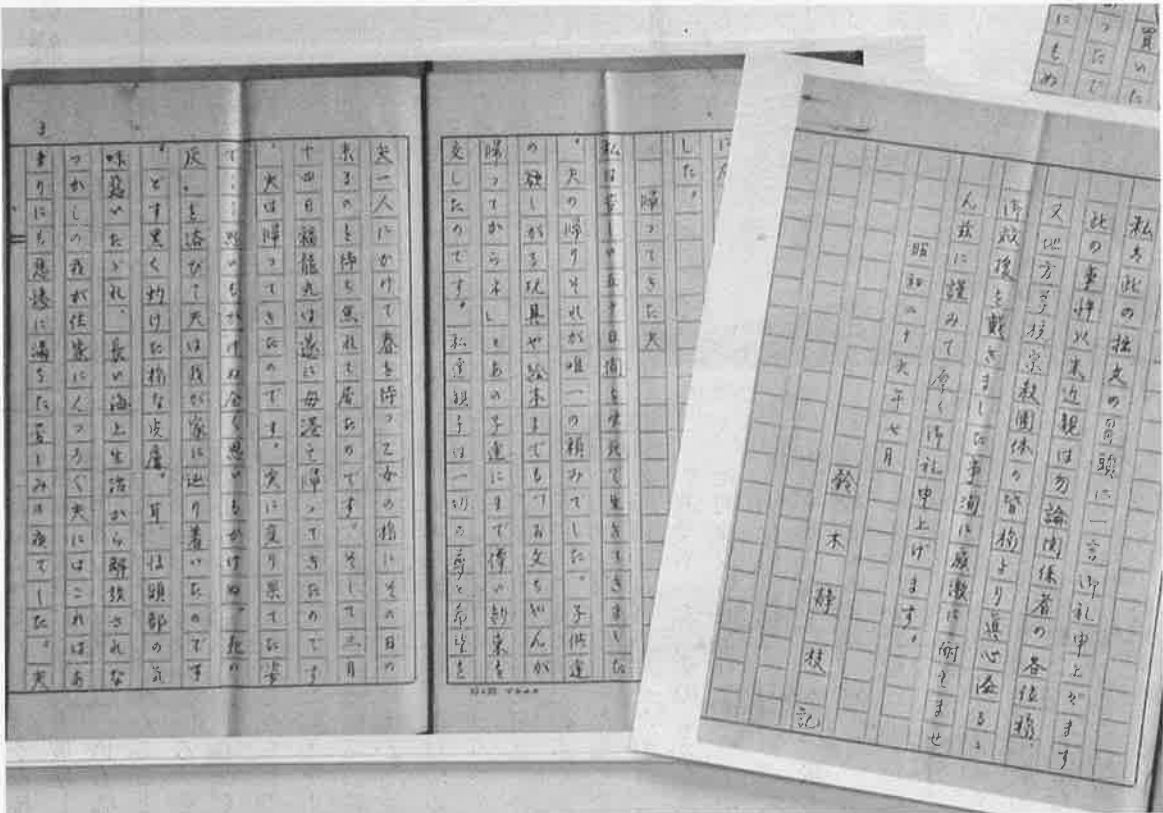 買いた
ったで
にもぬ
此の拙文の冒頭に一言御礼申上げます
此の事件以来近親は勿論関係者の各位様、
又地方学校宗教団体の皆様より真心溢るゝ
を戴きました事洵に感激に耐えませ
ん茲に謹みて厚く御礼申上げます。
昭和二十九年七月
鈴木静枝 記
した。
帰ってきた夫
私は苦しい五十日間を
。夫の帰りそれが唯一の頼みでした。子供達
の欲しがる玩具や絵本までも「お父ちゃんが
帰ってからネ」とあの子達にまで約束を
交したのです。私達親子は一切の夢と希望を
夫一人にかけて春を待つ乙女の様にその日の
来るのを待ち焦れて居たのです。そして三月
十四日福龍丸は遂に母港え帰ってきたのです
。夫は帰ってきたのです。実に変り果てた姿
で‥‥思いもかけぬ全く思いもかけぬ。死の
灰。を浴びて夫は我が家に辿り着いたのです
。どす黒く灼けた様な皮膚。耳、は頭部の気
味悪いたゞれ、長い海上生活から解放されな
つかしの我が住家にくつろぐ夫にはこれはあ
まりにも悲惨に満ちた苦しみの夜でした。夫
3